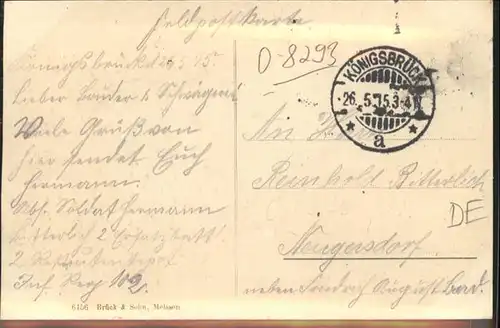 Feldpostkarte
Königsbrück d 26.5.15.
Lieber Bruder & Schwägerin
Viele Gruß von
hier sendet Euch
Hermann.
Abs. Soldat Hermann
Bitterlich 2 Ersatzbatl
2 Rekrutendepot
Inf. Reg 102
6156 Brück & Sohn, Meissen
O-8293
KÖNIGSBRÜCK
26.5.15.3-4N
* a *
An H
Reinhold Bitterlich
DE
Neugersdorf
neben Friedrich August Bad.